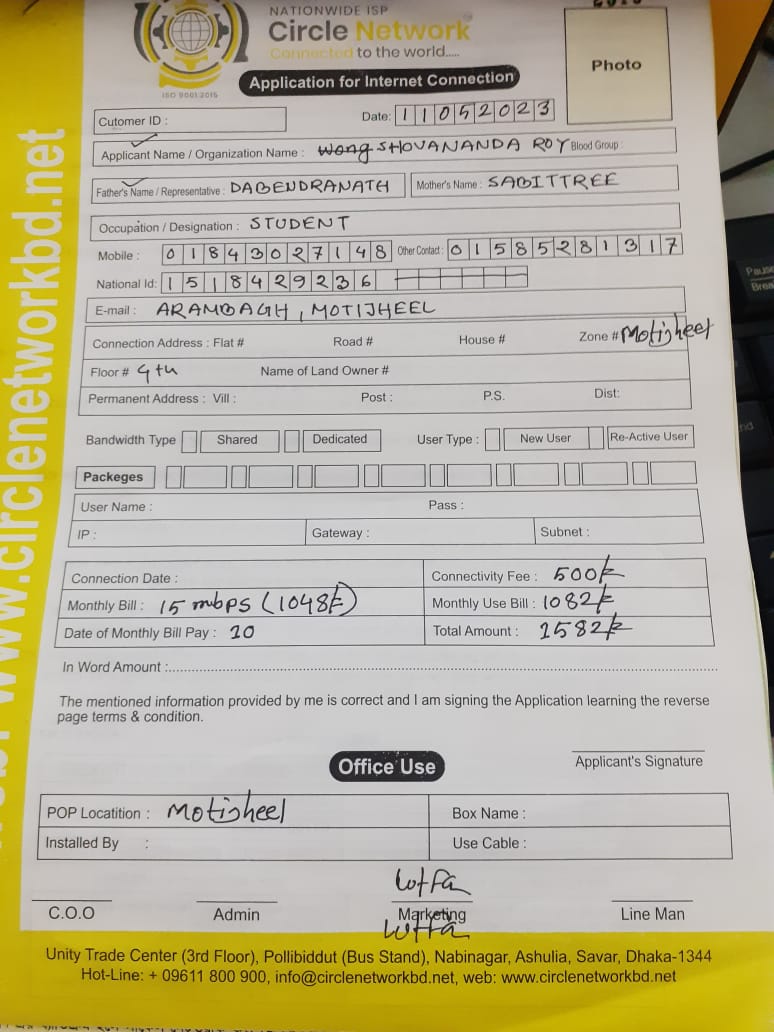 NATIONWIDE ISP
Circle Network
Connected to the world.....
ISO 9001:2015
Application for Internet Connection
Photo
Cutomer ID :
Date: 11052023
Applicant Name / Organization Name : SHOVANANDA ROY Blood Group :
Father's Name / Representative : DABENDRANATH Mother's Name : SABITTREE
Occupation / Designation : STUDENT
Mobile : 01843027148 Other Contact : 01585281317
National Id: 1518429236
E-mail : ARAMBAGH, MOTIJHEEL
Connection Address : Flat # Road # House # Zone # Motijheel
Floor # 9th Name of Land Owner #
Permanent Address : Vill : Post : P.S. Dist:
Bandwidth Type Shared Dedicated User Type : New User Re-Active User
Packeges
User Name : Pass :
IP : Gateway : Subnet :
Connection Date : Connectivity Fee : 500/-
Monthly Bill : 15 mbps (1048/-) Monthly Use Bill : 1082/-
Date of Monthly Bill Pay : 10 Total Amount : 1582/-
In Word Amount :
The mentioned information provided by me is correct and I am signing the Application learning the reverse
page terms & condition.
Applicant's Signature
Office Use
POP Locatition : Motijheel Box Name :
Installed By : Use Cable :
C.O.O Admin Marketing Line Man
Unity Trade Center (3rd Floor), Pollibiddut (Bus Stand), Nabinagar, Ashulia, Savar, Dhaka-1344
Hot-Line: + 09611 800 900, info@circlenetworkbd.net, web: www.circlenetworkbd.net
www.circlenetworkbd.net